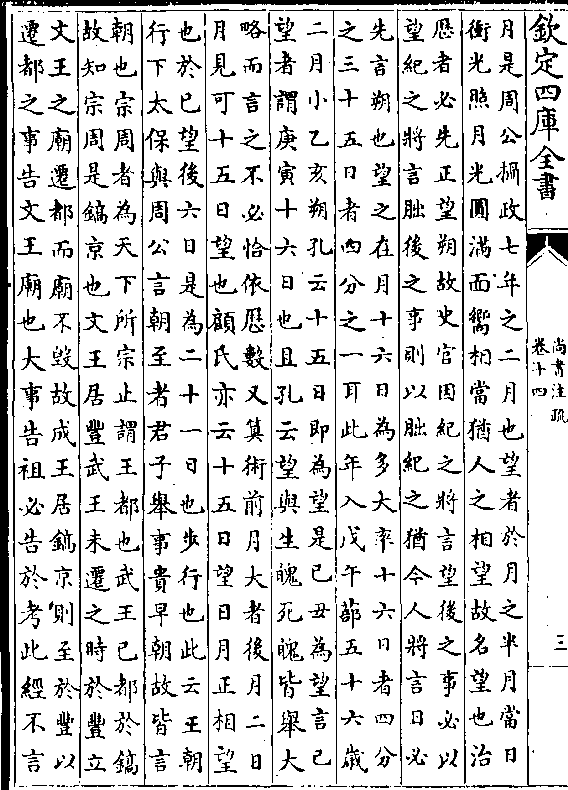 欽定四庫全書
尚書注疏
卷十四
三
月是周公攝政七年之二月也望者於月之半月當日
衝光照月光圓滿而嚮相當猶人之相望故名望也治
厯者必先正望朔故史官因紀之將言望後之事必以
望紀之將言朏後之事則以朏紀之猶今人將言日必
先言朔也望之在月十六日為多大率十六日者四分
之三十五日者四分之一耳此年入戊午蔀五十六歲
二月小乙亥朔孔云十五日即為望是己丑為望言已
望者謂庚寅十六日也且孔云望與生魄死魄皆舉大
略而言之不必恰依厯數又算術前月大者後月二日
月見可十五日望也顧氏亦云十五日望日月正相望
也於已望後六日是為二十一日也步行也此云王朝
行下太保與周公言朝至者君子舉事貴早朝故皆言
朝也宗周者為天下所宗止謂王都也武王已都於鎬
故知宗周是鎬京也文王居豐武王未遷之時於豐立
文王之廟遷都而廟不毀故成王居鎬京則至於豐以
遷都之事告文王廟也大事告祖必告於考此經不言